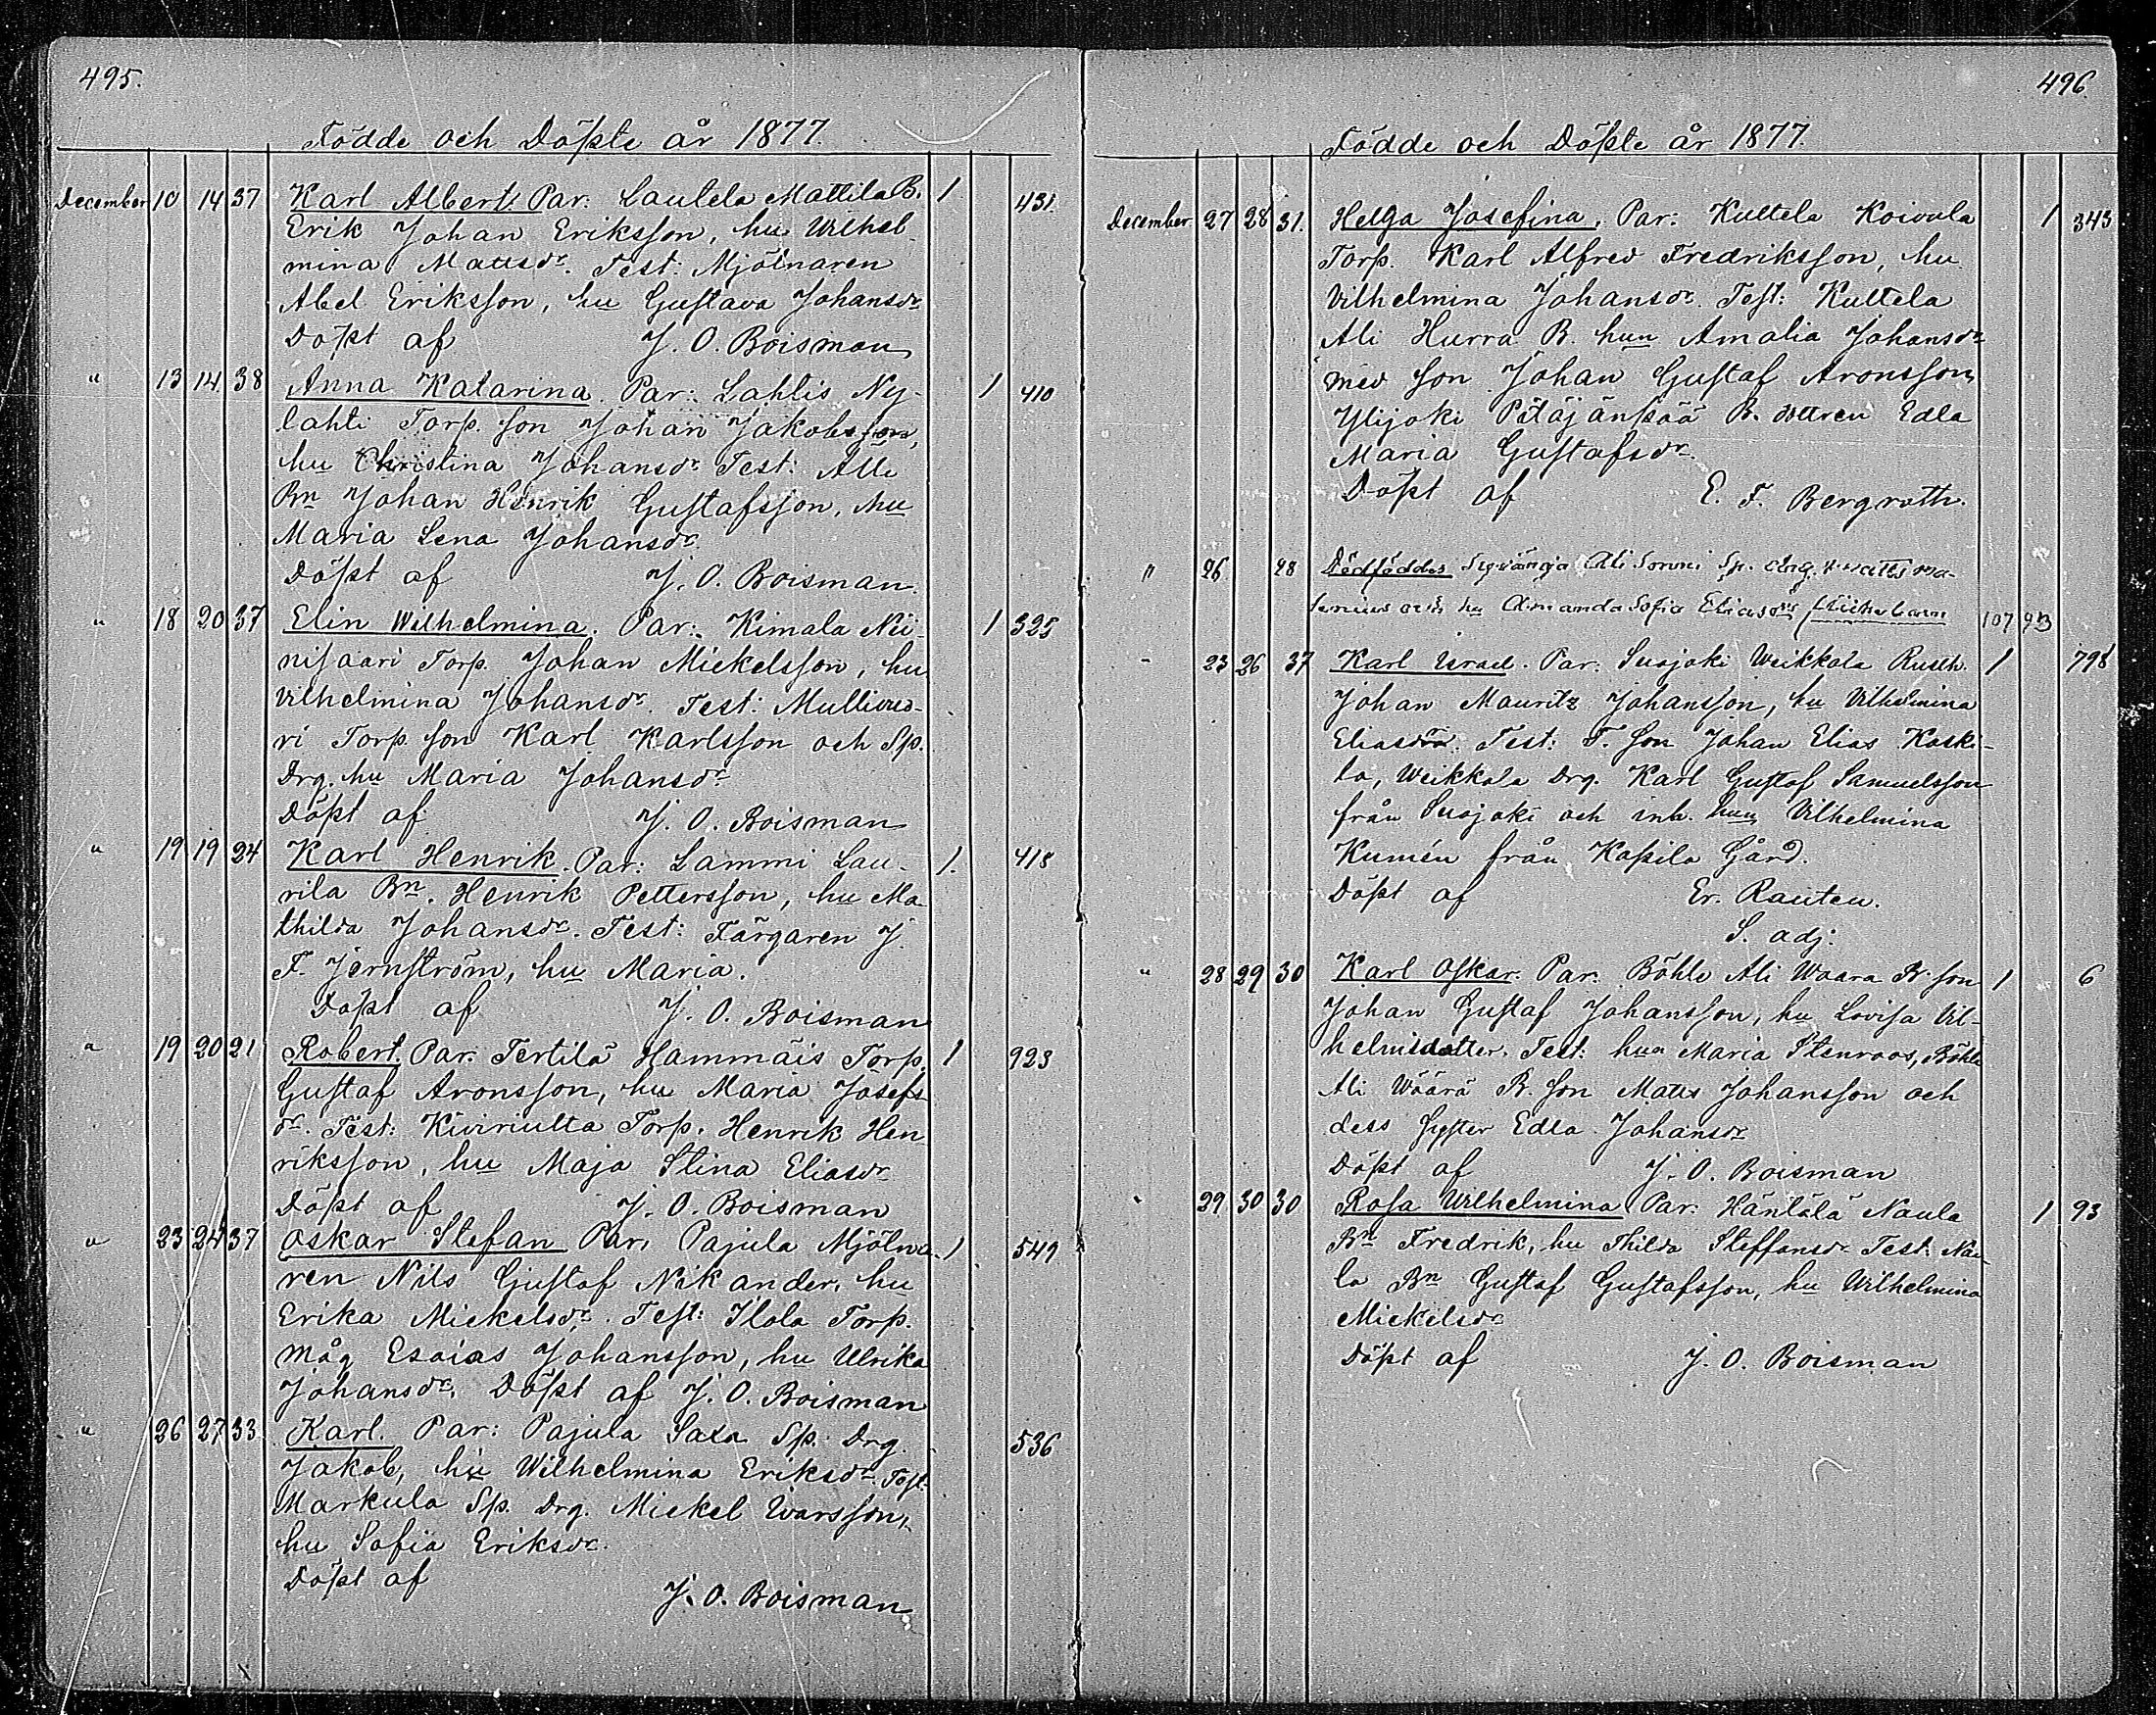 495.
Födde och Döpte år 1877.
December 10 14 37 Karl Albert. Par: Lautela Mattila B. 1 431.
Erik Johan Eriksson, hu Wilhel-
mina Mattsdr. Test: Mjölnaren
Abel Eriksson, hu Gustava Johansdr
Döpt af J. O. Boisman
" 13 14. 38 Anna Katarina. Par: Lahtis Ny- 1 410
lahti Torp. son Johan Jakobsson,
hu Christina Johansdr Test: Alli
Bn Johan Henrik Gustafsson, hu
Maria Lena Johansdr.
Döpt af J. O. Boisman.
" 18 20 37 Elin Wilhelmina. Par: Kimala Nii- 1 325
nisaari Torp. Johan Mickelsson, hu
Vilhelmina Johansdr. Test: Mullivuo-
ri Torp. son Karl Karlsson och Sp.
Drg. hu Maria Johansdr
Döpt af J. O. Boisman
" 19 19 24 Karl Henrik. Par: Lammi Lau- 1. 418
rila Bn. Henrik Pettersson, hu Ma
thilda Johansdr. Test: Färgaren J.
F. Jernström, hu Maria.
Döpt af J. O. Boisman
" 19 20 21 Robert. Par: Tertilä Hammäis Torp. 1 923
Gustaf Aronsson, hu Maria Josefs
dr. Test: Kiviriutta Torp. Henrik Hen
riksson, hu Maja Stina Eliasdr
Döpt af J. O. Boisman
" 23 24 37 Oskar Stefan Par. Pajula Mjölna- 1 549
ren Nils Gustaf Nikander, hu
Erika Mickelsdr. Test: Ilola Torp.
Måg Esaias Johansson, hu Ulrika
Johansdr. Döpt af J. O. Boisman
" 26 27 33 Karl. Par: Pajula Saxa Sp. Drg. 536
Jakob, hu Wilhelmina Eriksdr. Test.
Markula Sp. Drg. Mickel Ivarsson,
hu Sofia Eriksdr.
Döpt af
J. O. Boisman
496.
Födde och Döpte år 1877.
December. 27 28 31. Helga Josefina. Par: Kultela Koivula 1 343
Torp. Karl Alfred Fredriksson, hu
Vilhelmina Johansdr. Test: Kultela
Ali Hurra B. hun Amalia Johansdr
med son Johan Gustaf Aronsson,
Ylijoki Pitäjänpää B. dttren Edla
Maria Gustafsdr.
Döpt af E. F. Bergroth.
" 26 28 Dödföddes Ali Sp. drg. Matts
och hu Amanda Sofia Eliasdrs 107 93
" 23 26 37 Karl Israel. Par: Suojoki Weikkola Rusth. 1 798
Johan Mauritz Johansson, hu Vilhelmina
Eliasdr. Test: T. Son Johan Elias Koski-
la, Weikkola Drg. Karl Gustaf Samuelsson
från Suojoki och inh. hun Vilhelmina
Kumén från Kapila Gård.
Döpt af Er. Rauten.
S. adj.
" 28 29 30 Karl Oskar. Par: Böhle Ali Waara B. son 1 6
Johan Gustaf Johansson, hu Lovisa Vil-
helmsdotter. Test: hun Maria Stenroos, Böhle
Ali Wäärä B. son Matts Johansson och
dess syster Edla Johansdr
Döpt af J. O. Boisman
" 29 30 30 Rosa Wilhelmina Par: Häntälä Naula 1 93
Bn Fredrik, hu Thilda Steffansdr Test: Nau
la Bn Gustaf Gustafsson, hu Wilhelmina
Mickelsdr
Döpt af J. O. Boisman